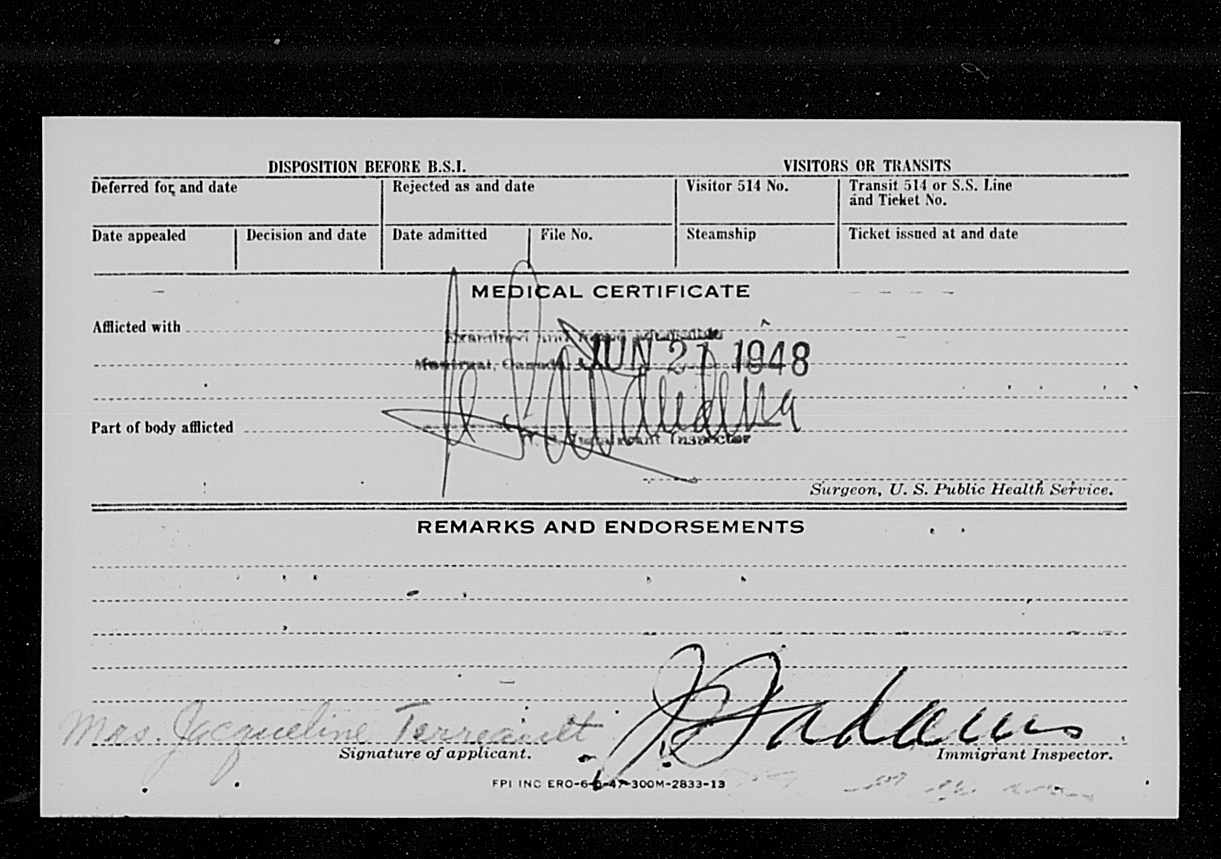 DISPOSITION BEFORE B.S.I. VISITORS OR TRANSITS
Deferred for, and date Rejected as and date Visitor 514 No. Transit 514 or S.S. Line and Ticket No.
Date appealed Decision and date Date admitted File No. Steamship Ticket issued at and date
MEDICAL CERTIFICATE
Afflicted with
Examined and
Montreal, Canada, JUN 21 1948
Part of body afflicted
Immigrant Inspector
Surgeon, U. S. Public Health Service.
REMARKS AND ENDORSEMENTS
Mrs. Jacqueline Terreault
Signature of applicant. Immigrant Inspector.
FPI INC ERO-6-6-47-300M-2833-13